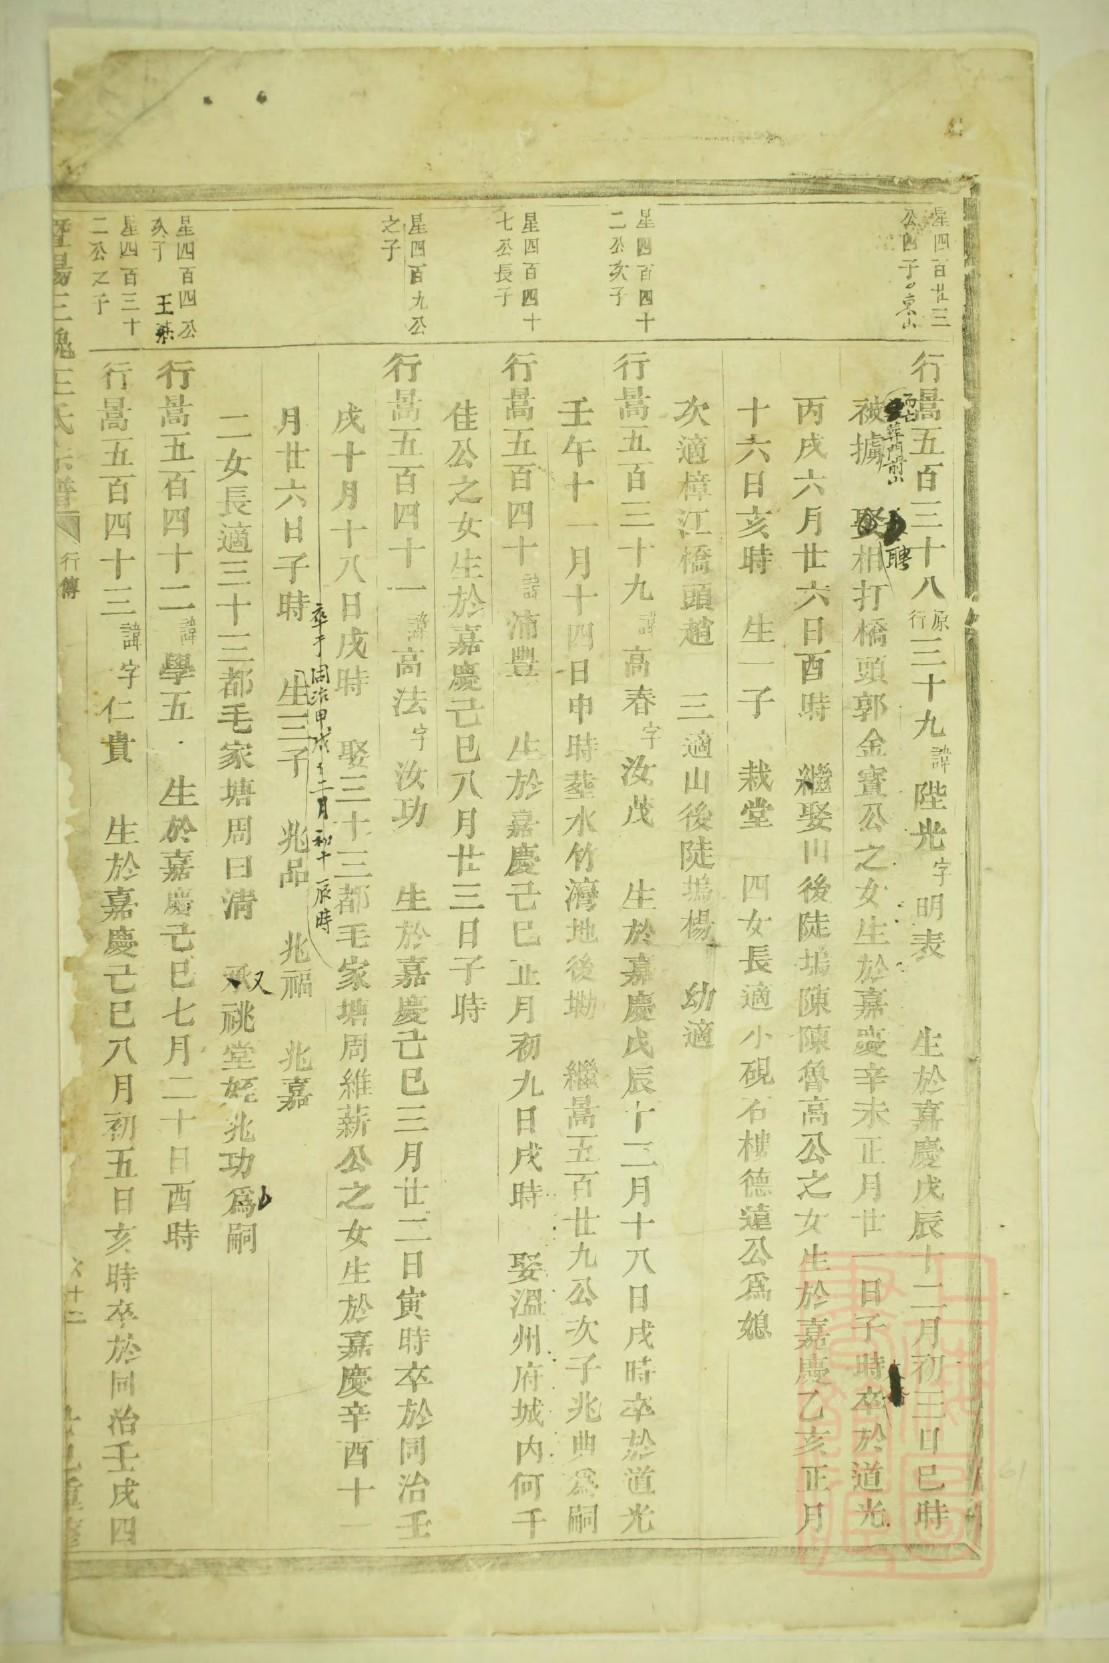 星四百廿三
公四子
行暠五百三十八原行三十九諱陛光字明表 生於嘉慶戊辰十二月初三日巳時
被擄 娶柑打橋頭郭金寳公之女生於嘉慶辛未正月廿一日子時卒於道光
聘
丙戌六月廿六日酉時 繼娶山後陡塢陳陳魯高公之女生於嘉慶乙亥正月
十六日亥時 生一子 栽堂 四女長適小硯石樓德達公爲媳
次適樟江橋頭趙 三適山後陡塢楊 幼適
星四百四十
二公次子
行暠五百三十九諱高春字汝茂 生於嘉慶戊辰十二月十八日戌時卒於道光
壬午十一月十四日申時塟水竹灣地後塝 繼暠五百廿九公次子兆典爲嗣
星四百四十
七公長子
行暠五百四十諱沛豊 生於嘉慶己巳正月初九日戌時 娶溫州府城内何千
佳公之女生於嘉慶己巳八月廿三日子時
星四百九公
之子
行暠五百四十一諱高法字汝功 生於嘉慶己巳三月廿二日寅時卒於同治壬
戌十月十八日戌時 娶三十三都毛家塘周維薪公之女生於嘉慶辛酉十一
卒于同治甲戌十二月初十辰時
月廿六日子時 生三子 兆品 兆福 兆嘉
二女長適三十三都毛家塘周曰清 又承祧堂姪兆功爲嗣
星四百四公
次子
行暠五百四十二諱學五 生於嘉慶己巳七月二十日酉時
星四百三十
二公之子
行暠五百四十三諱字仁貴 生於嘉慶己巳八月初五日亥時卒於同治壬戌四
暨陽三槐王氏宗譜 行傳 六十二